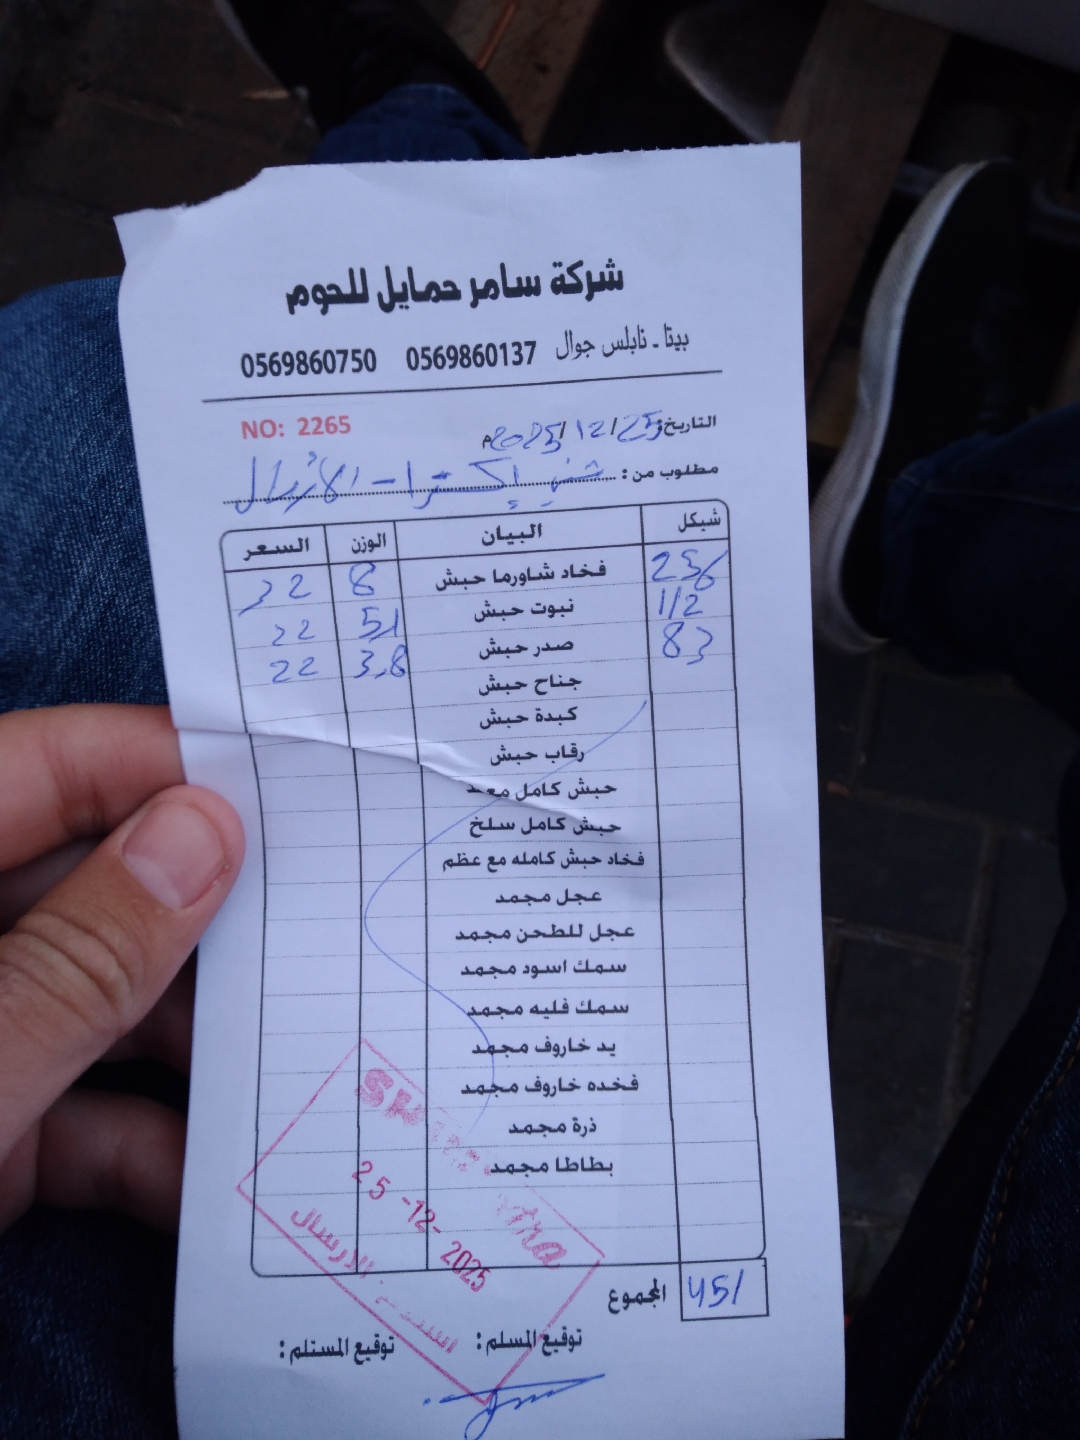 شركة سامر حمايل للحوم
بيتا - نابلس جوال 0569860137 0569860750
NO: 2265
التاريخ: 25/12/2025م
مطلوب من: إكسترا - الإرسال
شيكل البيان الوزن السعر
256 فخاد شاورما حبش 8 32
112 نبوت حبش 5,1 22
83 صدر حبش 3.8 22
جناح حبش
كبدة حبش
رقاب حبش
حبش كامل
حبش كامل سلخ
فخاد حبش كامله مع عظم
عجل مجمد
عجل للطحن مجمد
سمك اسود مجمد
سمك فليه مجمد
يد خاروف مجمد
فخده خاروف مجمد
ذرة مجمد
بطاطا مجمد
25 -12- 2025
الارسال
المجموع 451
توقيع المسلم: توقيع المستلم: